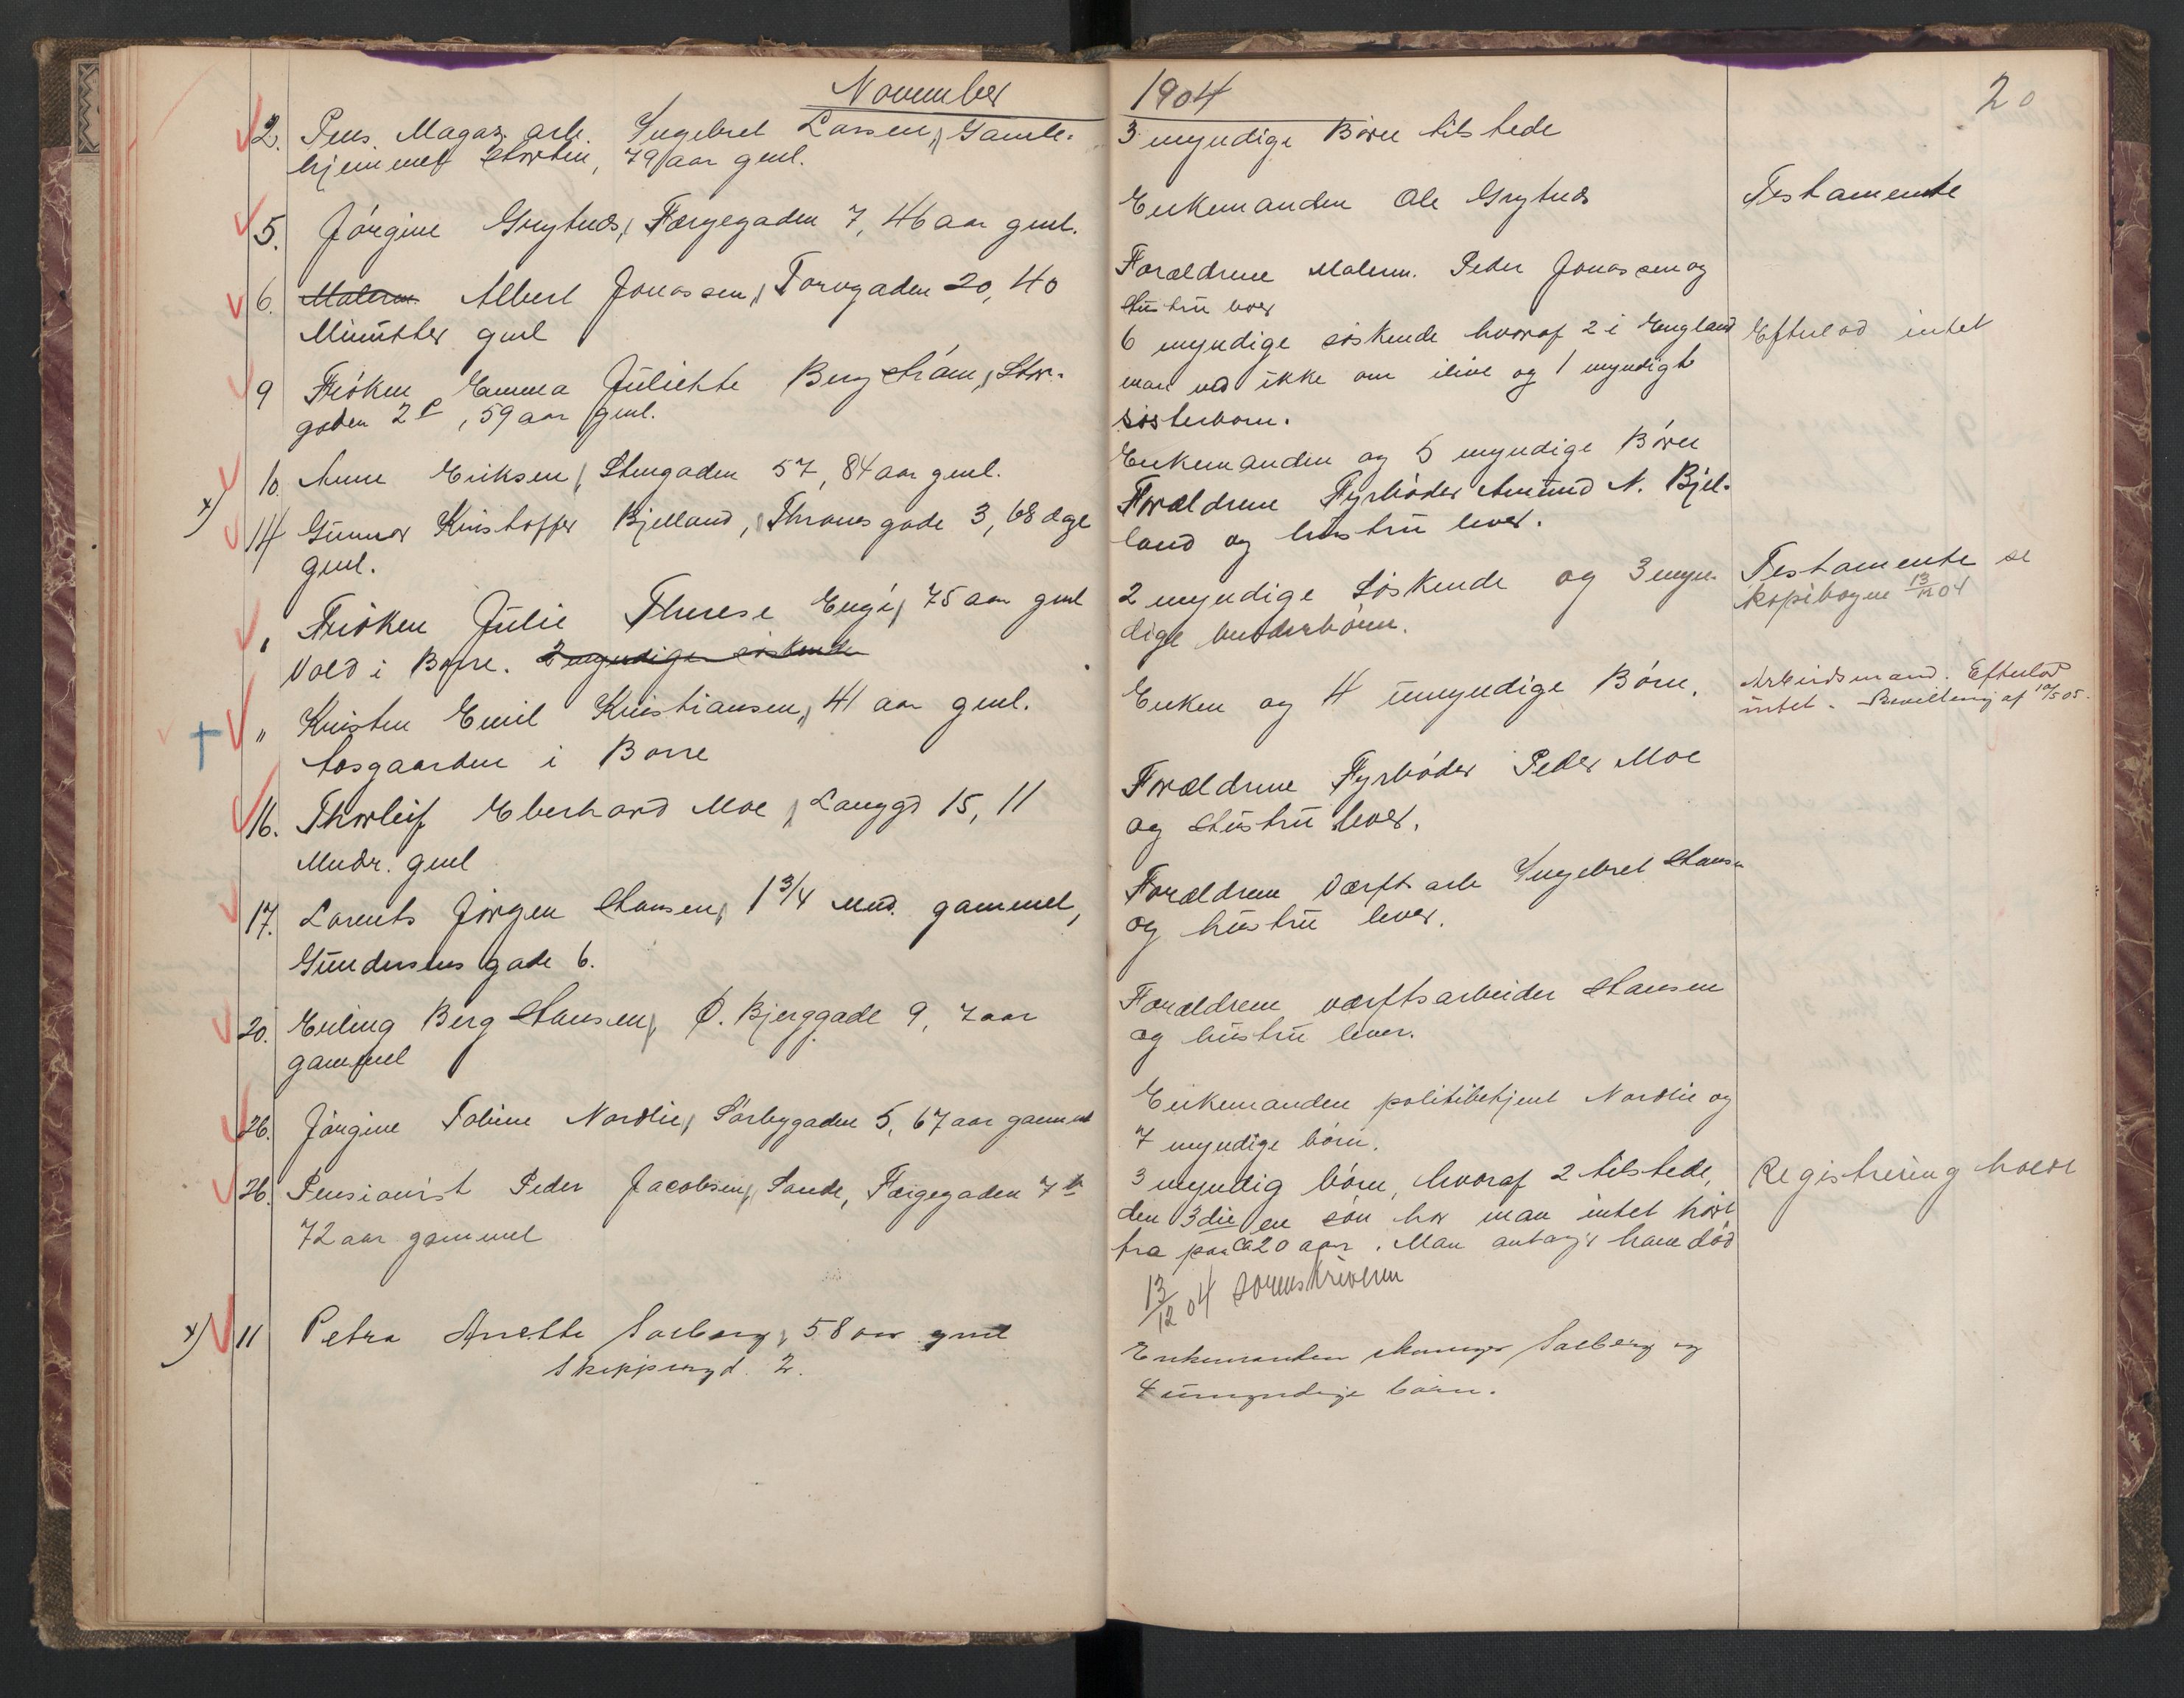 November
2. Pens. Magaz. arb. Ingebret Larsen, Gamle-
hjemmet Horten, 79 aar gml.
5. Jörgine Grytnes, Færgegaden 7, 46 aar gml.
6. Malerm Albert Jonassen, Torvgaden 20, 40
Minutter gml
9 Fröken Emma Juliette Bergström, Stor-
gaden 2 c, 59 aar gml.
10. Anne Eriksen, Stengaden 57, 84 aar gml.
x) 14 Gunnar Kristoffer Bjelland, Thranes gade 3, 68 dage
gml.
" Fröken Julie Therese Engö, 75 aar gml
Vold i Borre. 2 myndige söskende
" Kristen Emil Kristiansen, 41 aar gml.
Aasgaarden i Borre
16. Thorleif Eberhard Moe, Langgd 15, 11
Mndr. gml
17. Lorents Jörgen Hansen, 1 3/4 Mnd. gammel,
Gundersens gade 6.
20. Erling Berg Hansen, Ø. Bjerggade 9, 7 aar
gammel
26. Jörgine Tobine Nordlie, Sörbygaden 5, 67 aar gammel
26. Pensionist Peder Jacobsen, Sande, Færgegaden 7 b
72 aar gammel
x) 11 Petra Anette Solberg, 58 aar gml
Skippergd. 2.
1904
20
3 myndige Börn tilstede
Enkemanden Ole Grytnes
Testamente
Forældrene Malerm. Peder Jonassen og
Hustru lever
6 myndige söskende hvoraf 2 i England
Efterlod intet
man ved ikke om ilive og 1 myndigt
sösterbarn.
Enkemanden og 5 myndige Börn
Forældrene Fyrböder Amund N. Bjel-
land og hustru lever.
2 myndige Söskende og 3 myn-
dige broderbörn.
Testamente se
kopibogen 13/12 04
Enken og 4 umyndige Börn.
Arbeidsmand. Efterlod
intet. Bevilling af 10/5 05.
Forældrene Fyrböder Peder Moe
og Hustru lever.
Forældrene Værftsarb Ingebret Hansen
og hustru lever.
Forældrene værftsarbeider Hansen
og hustru lever.
Enkemanden politibetjent Nordlie og
7 myndige börn.
3 myndig börn, hvoraf 2 tilstede,
Registrering holdt
den 3die en sön har man intet hört
fra paa ca 20 aar. Man antager ham död
13/12 04 Sorenskriveren
Enkemanden Solberg og
4 umyndige börn.